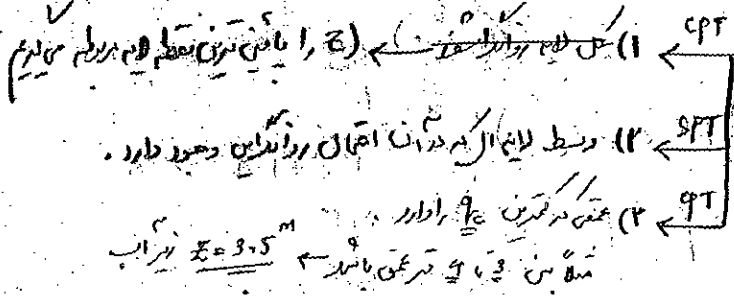 CPT
۱) کل لایه روانگرا شود ← (Z را پائین ترین نقطه لایه مربوطه می گیریم)
SPT
۲) وسط لایه ای که در آن احتمال روانگرایی وجود دارد .
CPT
۳) عمقی که کمترین qc را دارد .
مثلاً بین 3 تا 4 متر عمق باشد ← Z = 3.5 m زیر آب